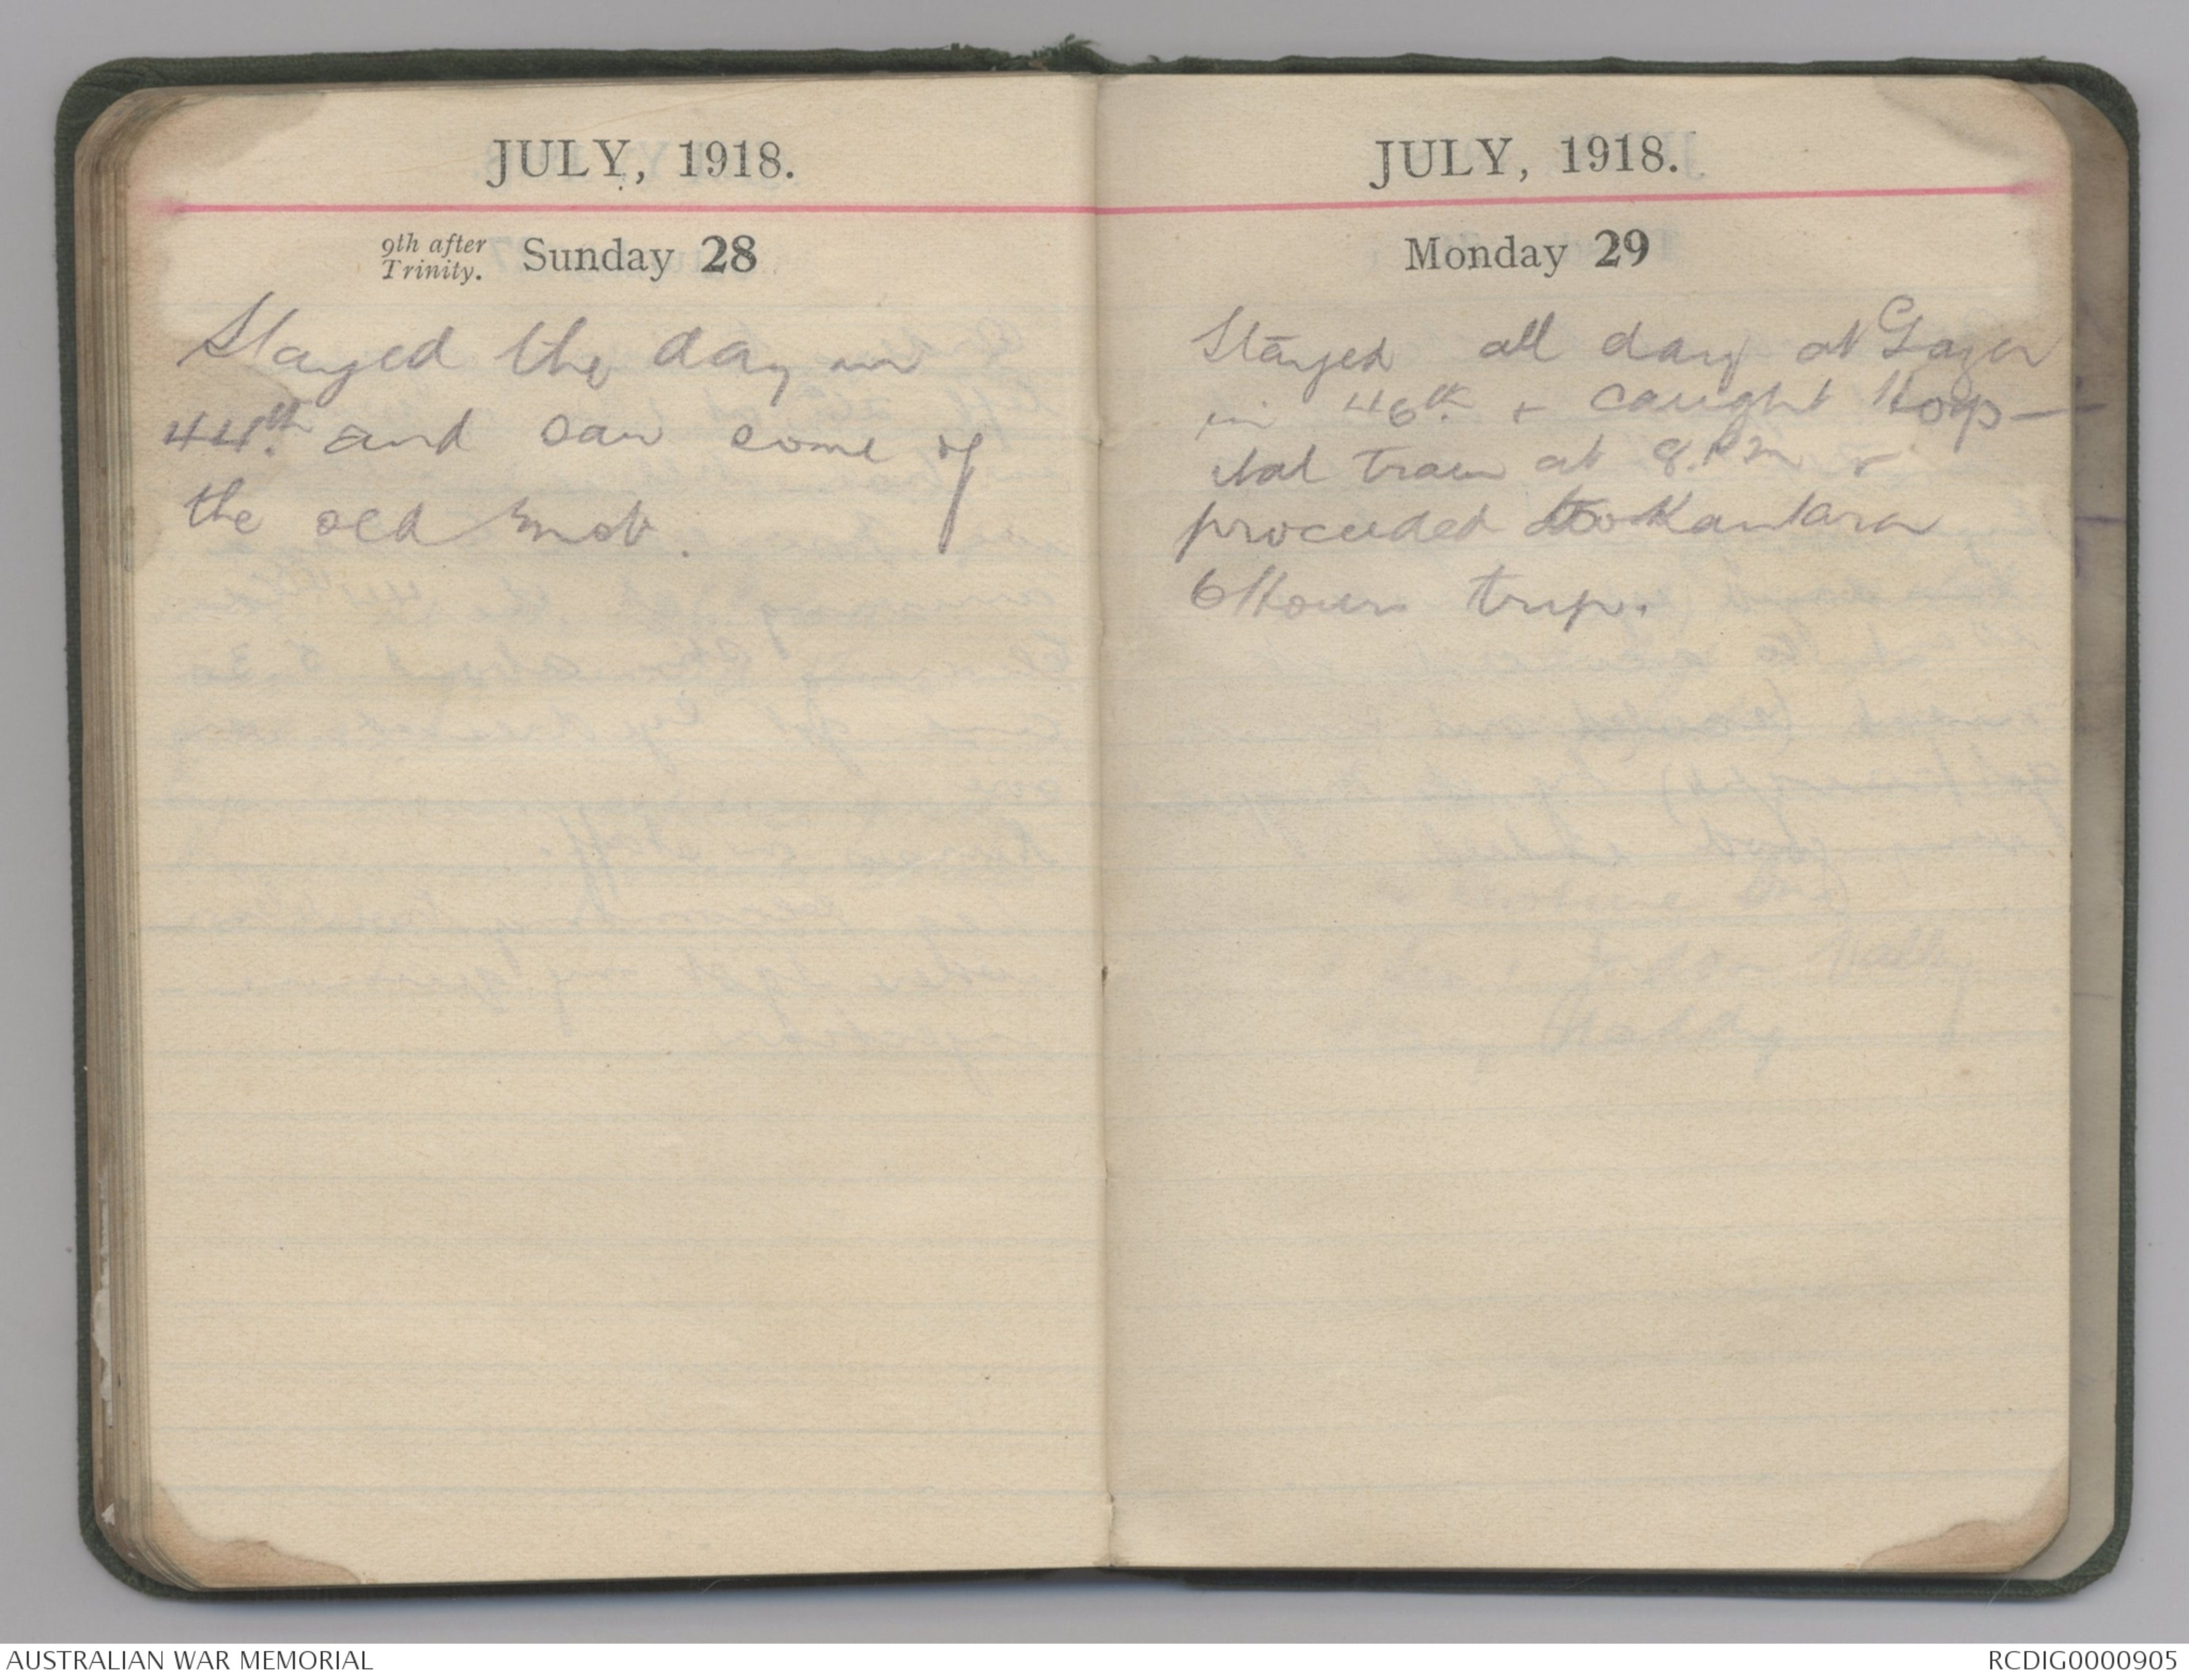 JULY, 1918.
9th after Trinity. Sunday 28
Stayed the day in
44th. and saw some of
the old mob.
JULY, 1918.
Monday 29
Stayed all day at Gaza
in 46th. + caught Hosp-
ital Train at 8.PM &
proceeded to Kantara
6 Hours trip.
AUSTRALIAN WAR MEMORIAL
RCDIG0000905